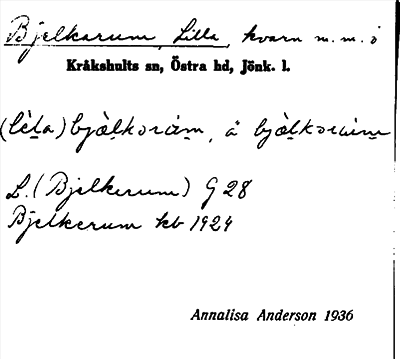 Bjelkarum, Lilla, kvarn m.m. i
Kråkshults sn, Östra hd, Jönk. l.
(lèla) bjàlkorùm, å bjàlkorùm
L. (Bjelkerum) G 28
Bjelkerum kb 1924
Annalisa Anderson 1936